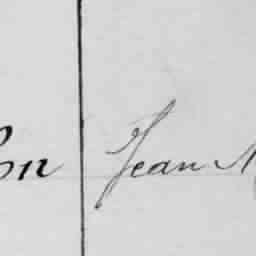 on Jean